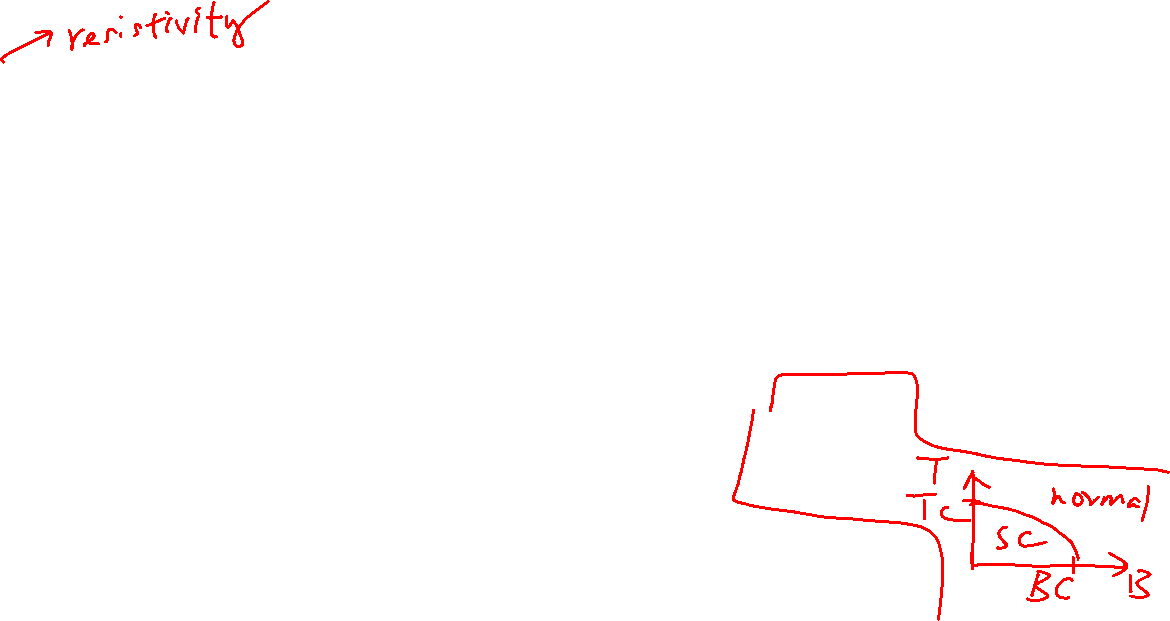 resistivity
T
Tc
normal
SC
BC
B